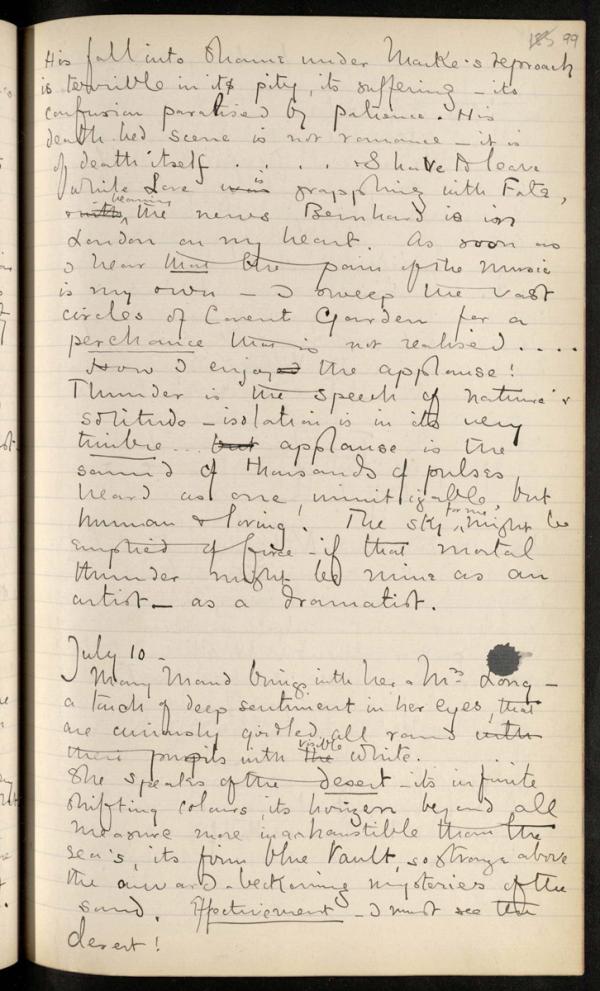 185 99
His fall into shame under Marke's reproach
is terrible in its pity, its suffering – its
confusion paralised by patience. His
death-bed scene is not romance – it is
of death itself . . . . & I have to leave
while Love was is grappling with Fate,
with hearing the news Bernhard is in
London on my heart. As soon as
I hear that the pain of the music
is my own – I sweep the vast
circles of Covent Garden for a
perchance that is not realised . . . .
How I enjoyed the applause!
Thunder is the speech of nature's
solitude – isolation is in its very
timbre... but applause is the
sound of thousands of pulses
heard as one immitigable, but
human & loving! The sky, for me, might be
emptied of fire – if that mortal
thunder might be mine as an
artist – as a dramatist.
July 10 –
Mary Maud brings with her a Mrs Long –
a touch of deep sentiment in her eyes, that
are curiously girdled all round with
their pupils with the visible white. . . . .
She speaks of the desert – its infinite
shifting colours, its horizon beyond all
measure more inexhaustible than the
sea's, its firm blue vault, so strange above
the onward-beckoning mysteries of the
sand. – I must see the
desert!